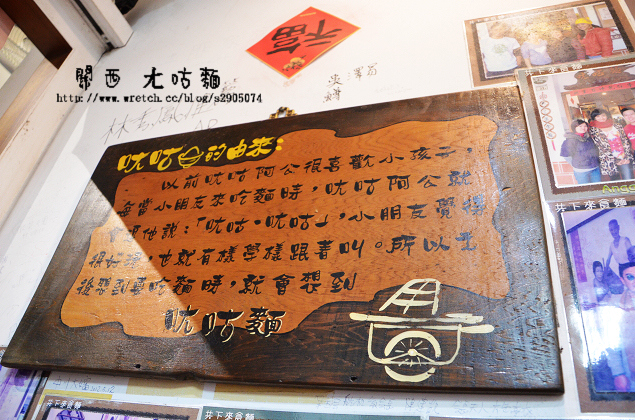 福
關西 尢咕麵
http://www.wretch.cc/blog/s2905074
吭咕的由來：
以前吭咕阿公很喜歡小孩子，
每當小朋友來吃麵時，吭咕阿公就
他說：「吭咕．吭咕」，小朋友覺得
很好，也就有樣學樣跟着叫。所以
後想到要吃麵時，就會想到
吭咕麵
井下來食麵
井下來食麵
井下來食麵